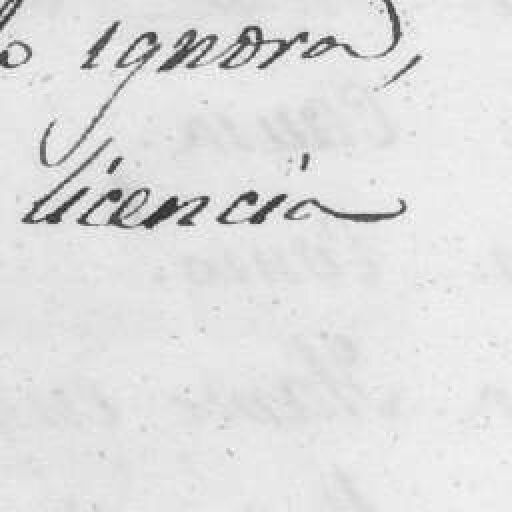 lo ignora,
licencia